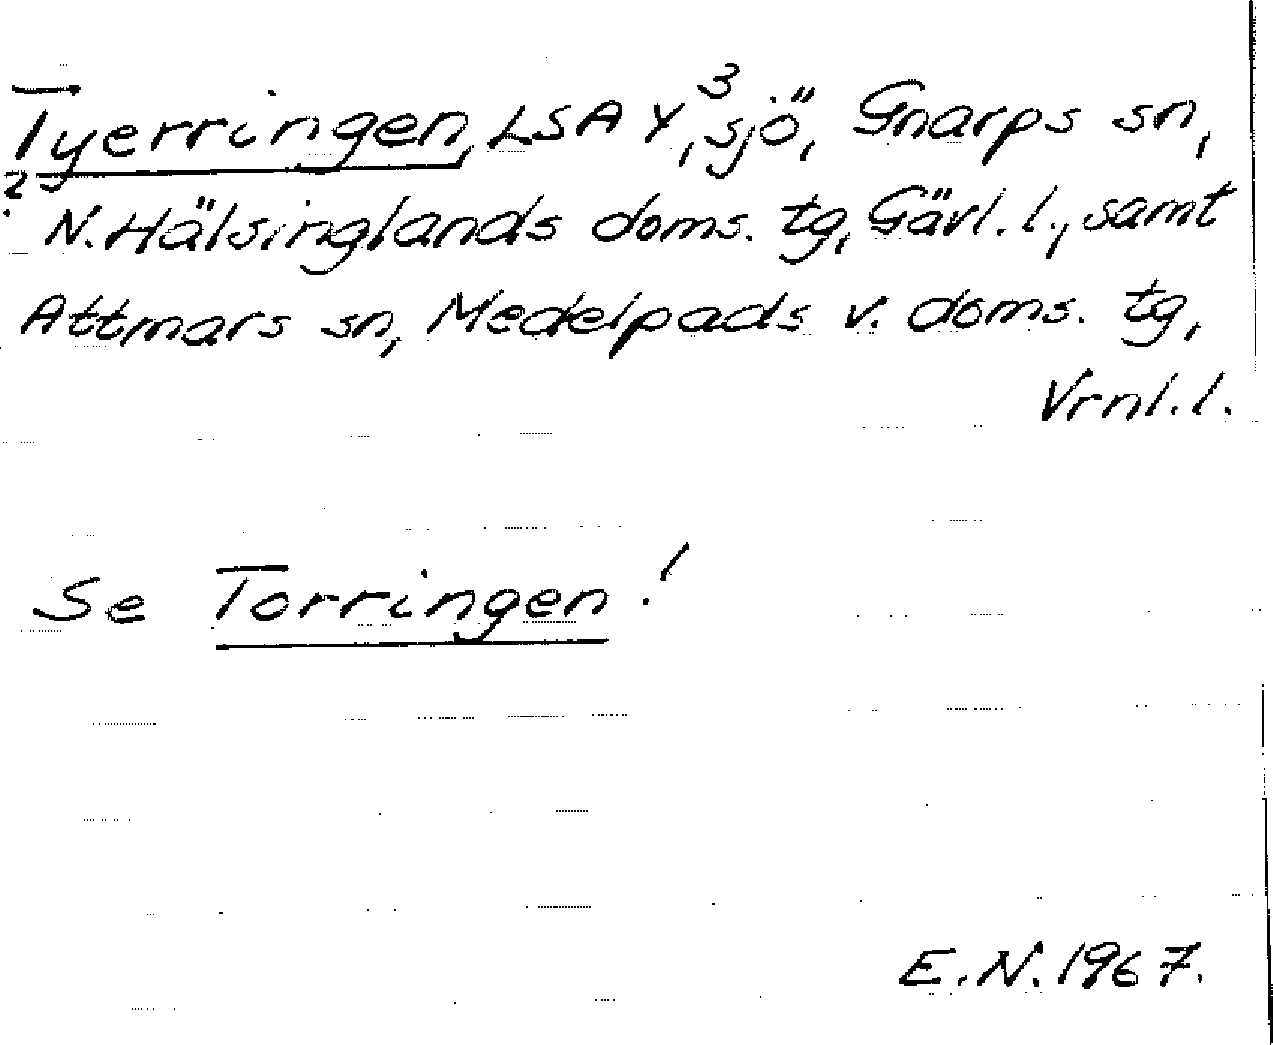 Tyerringen, LSA Y³, sjö, Gnarps sn,
N. Hälsinglands doms. tg, Gävl. l., samt
Attmars sn, Medelpads v. doms. tg,
Vrnl. l.
Se Torringen!
E. N. 1967.